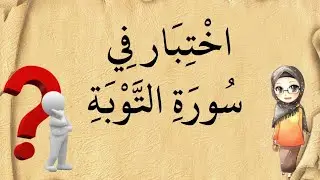 اخْتِبَار فِي
سُورَةِ التَّوْبَةِ